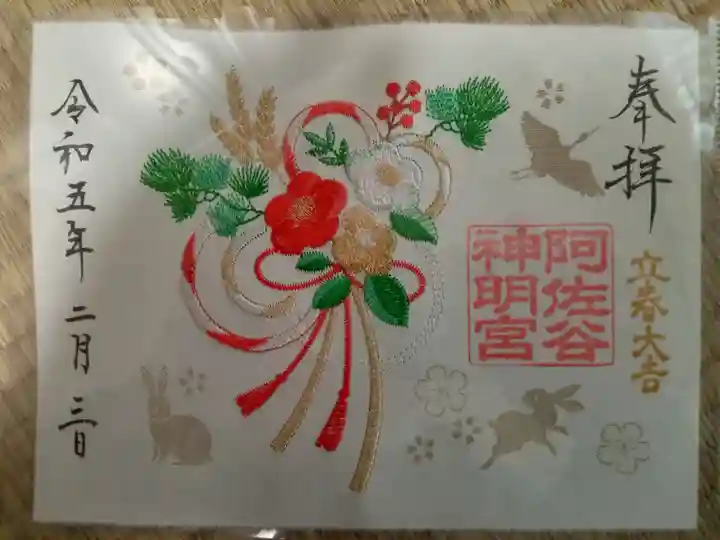 奉拝
立春大吉
阿佐谷
神明宮
令和五年二月三日